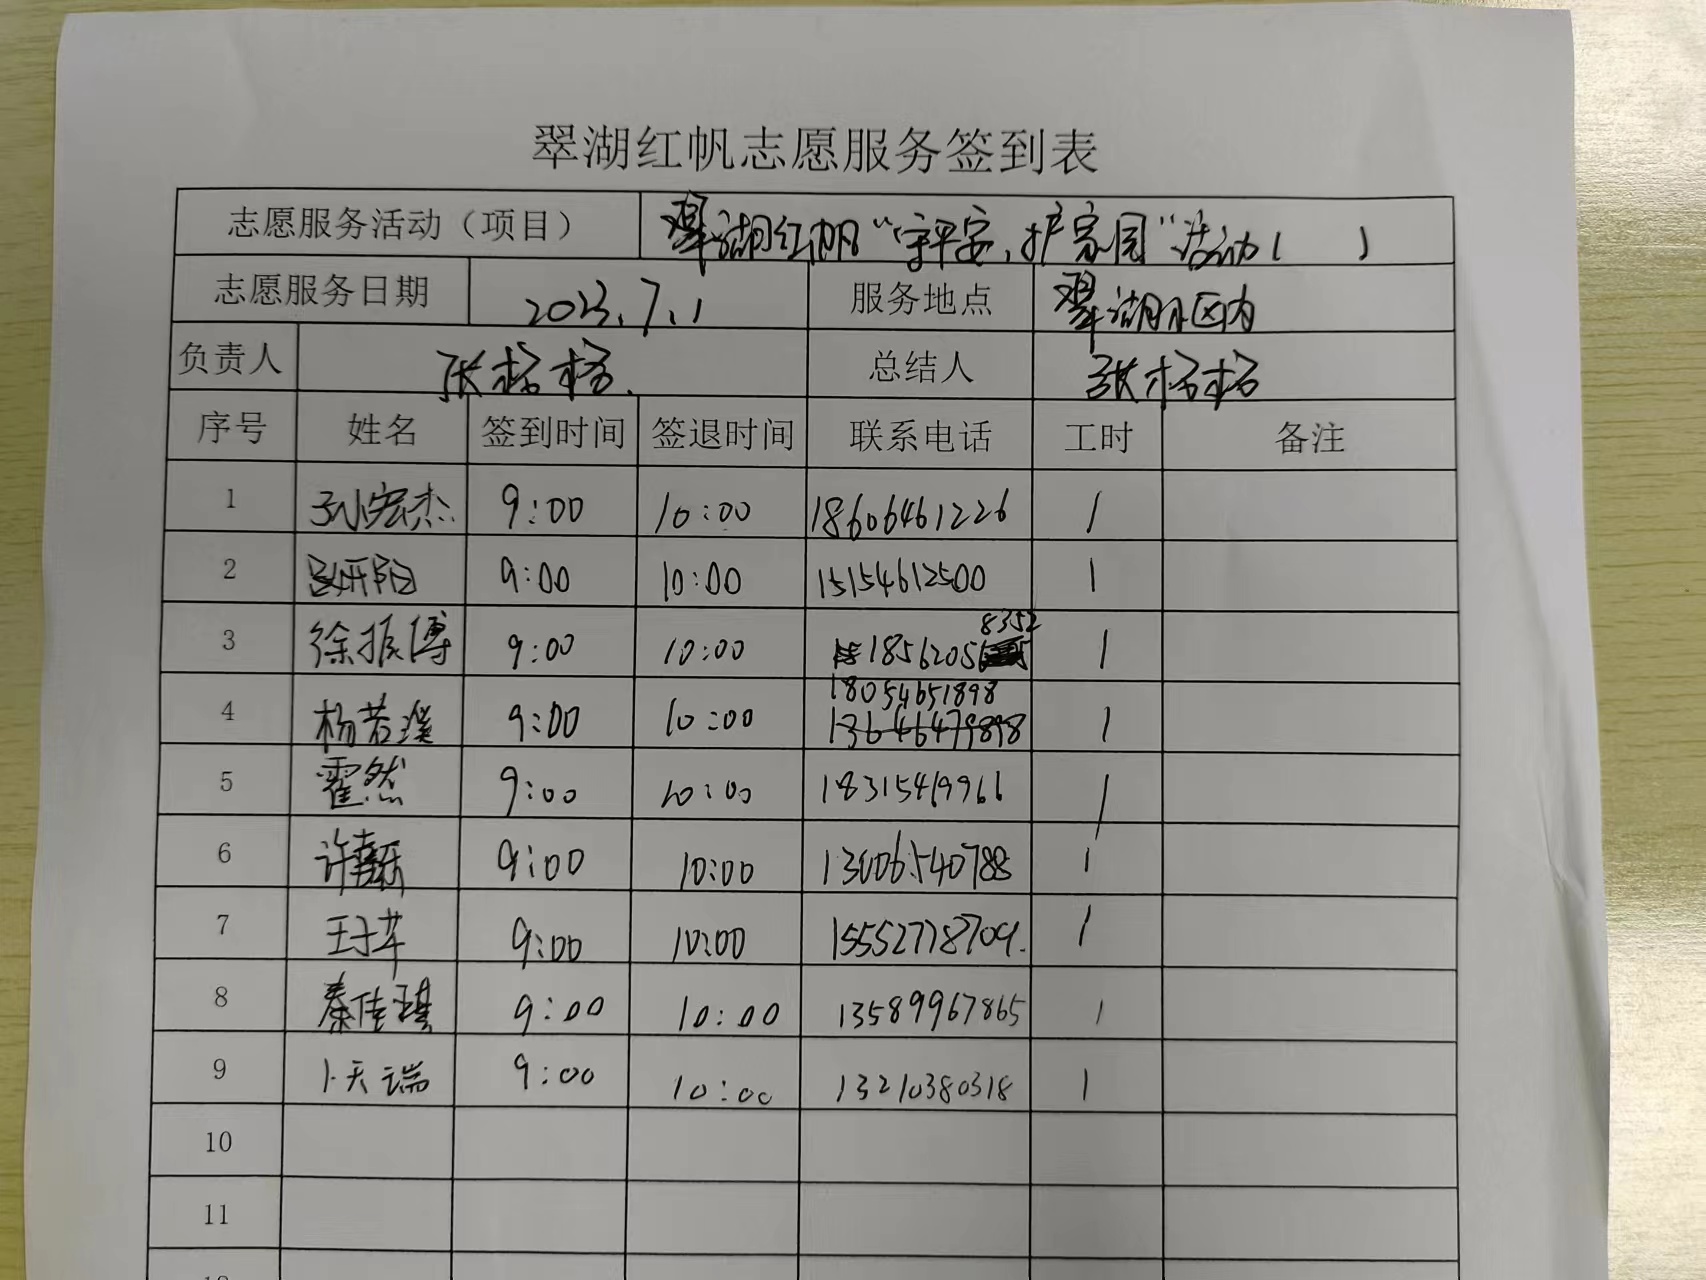 翠湖红帆志愿服务签到表
志愿服务活动（项目） 翠湖红帆“守平安，护家园”活动（ ）
志愿服务日期 2023.7.1 服务地点 翠湖小区内
负责人 张格格. 总结人 张格格
序号 姓名 签到时间 签退时间 联系电话 工时 备注
1 孙宏杰 9:00 10:00 18606461226 1
2 9:00 10:00 15154612500 1
3 徐振博 9:00 10:00 1856205 8352 1
4 杨若溪 9:00 10:00 18054651898 1
13646479898
5 霍然 9:00 10:00 18315419966 1
6 许嘉乐 9:00 10:00 13006540788 1
7 王子芊 9:00 10:00 15552778709. 1
8 秦佳琪 9:00 10:00 13589967865 1
9 卜天瑞 9:00 10:00 13210380318 1
10
11